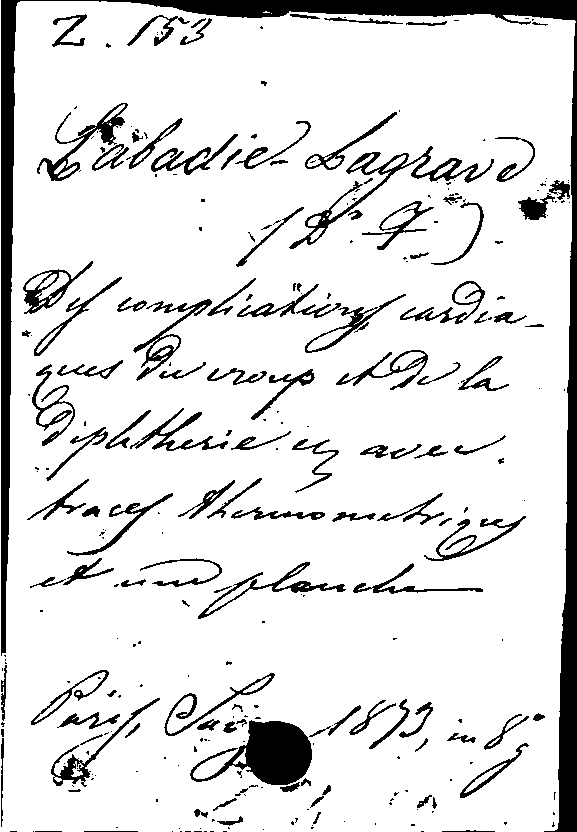 Z. 153
Labadie-Lagrave
(Dr F)
Des complications cardia-
ques du croup et de la
diphtherie avec
traces thermometriques
et une planche
Paris, 1873, in 8º